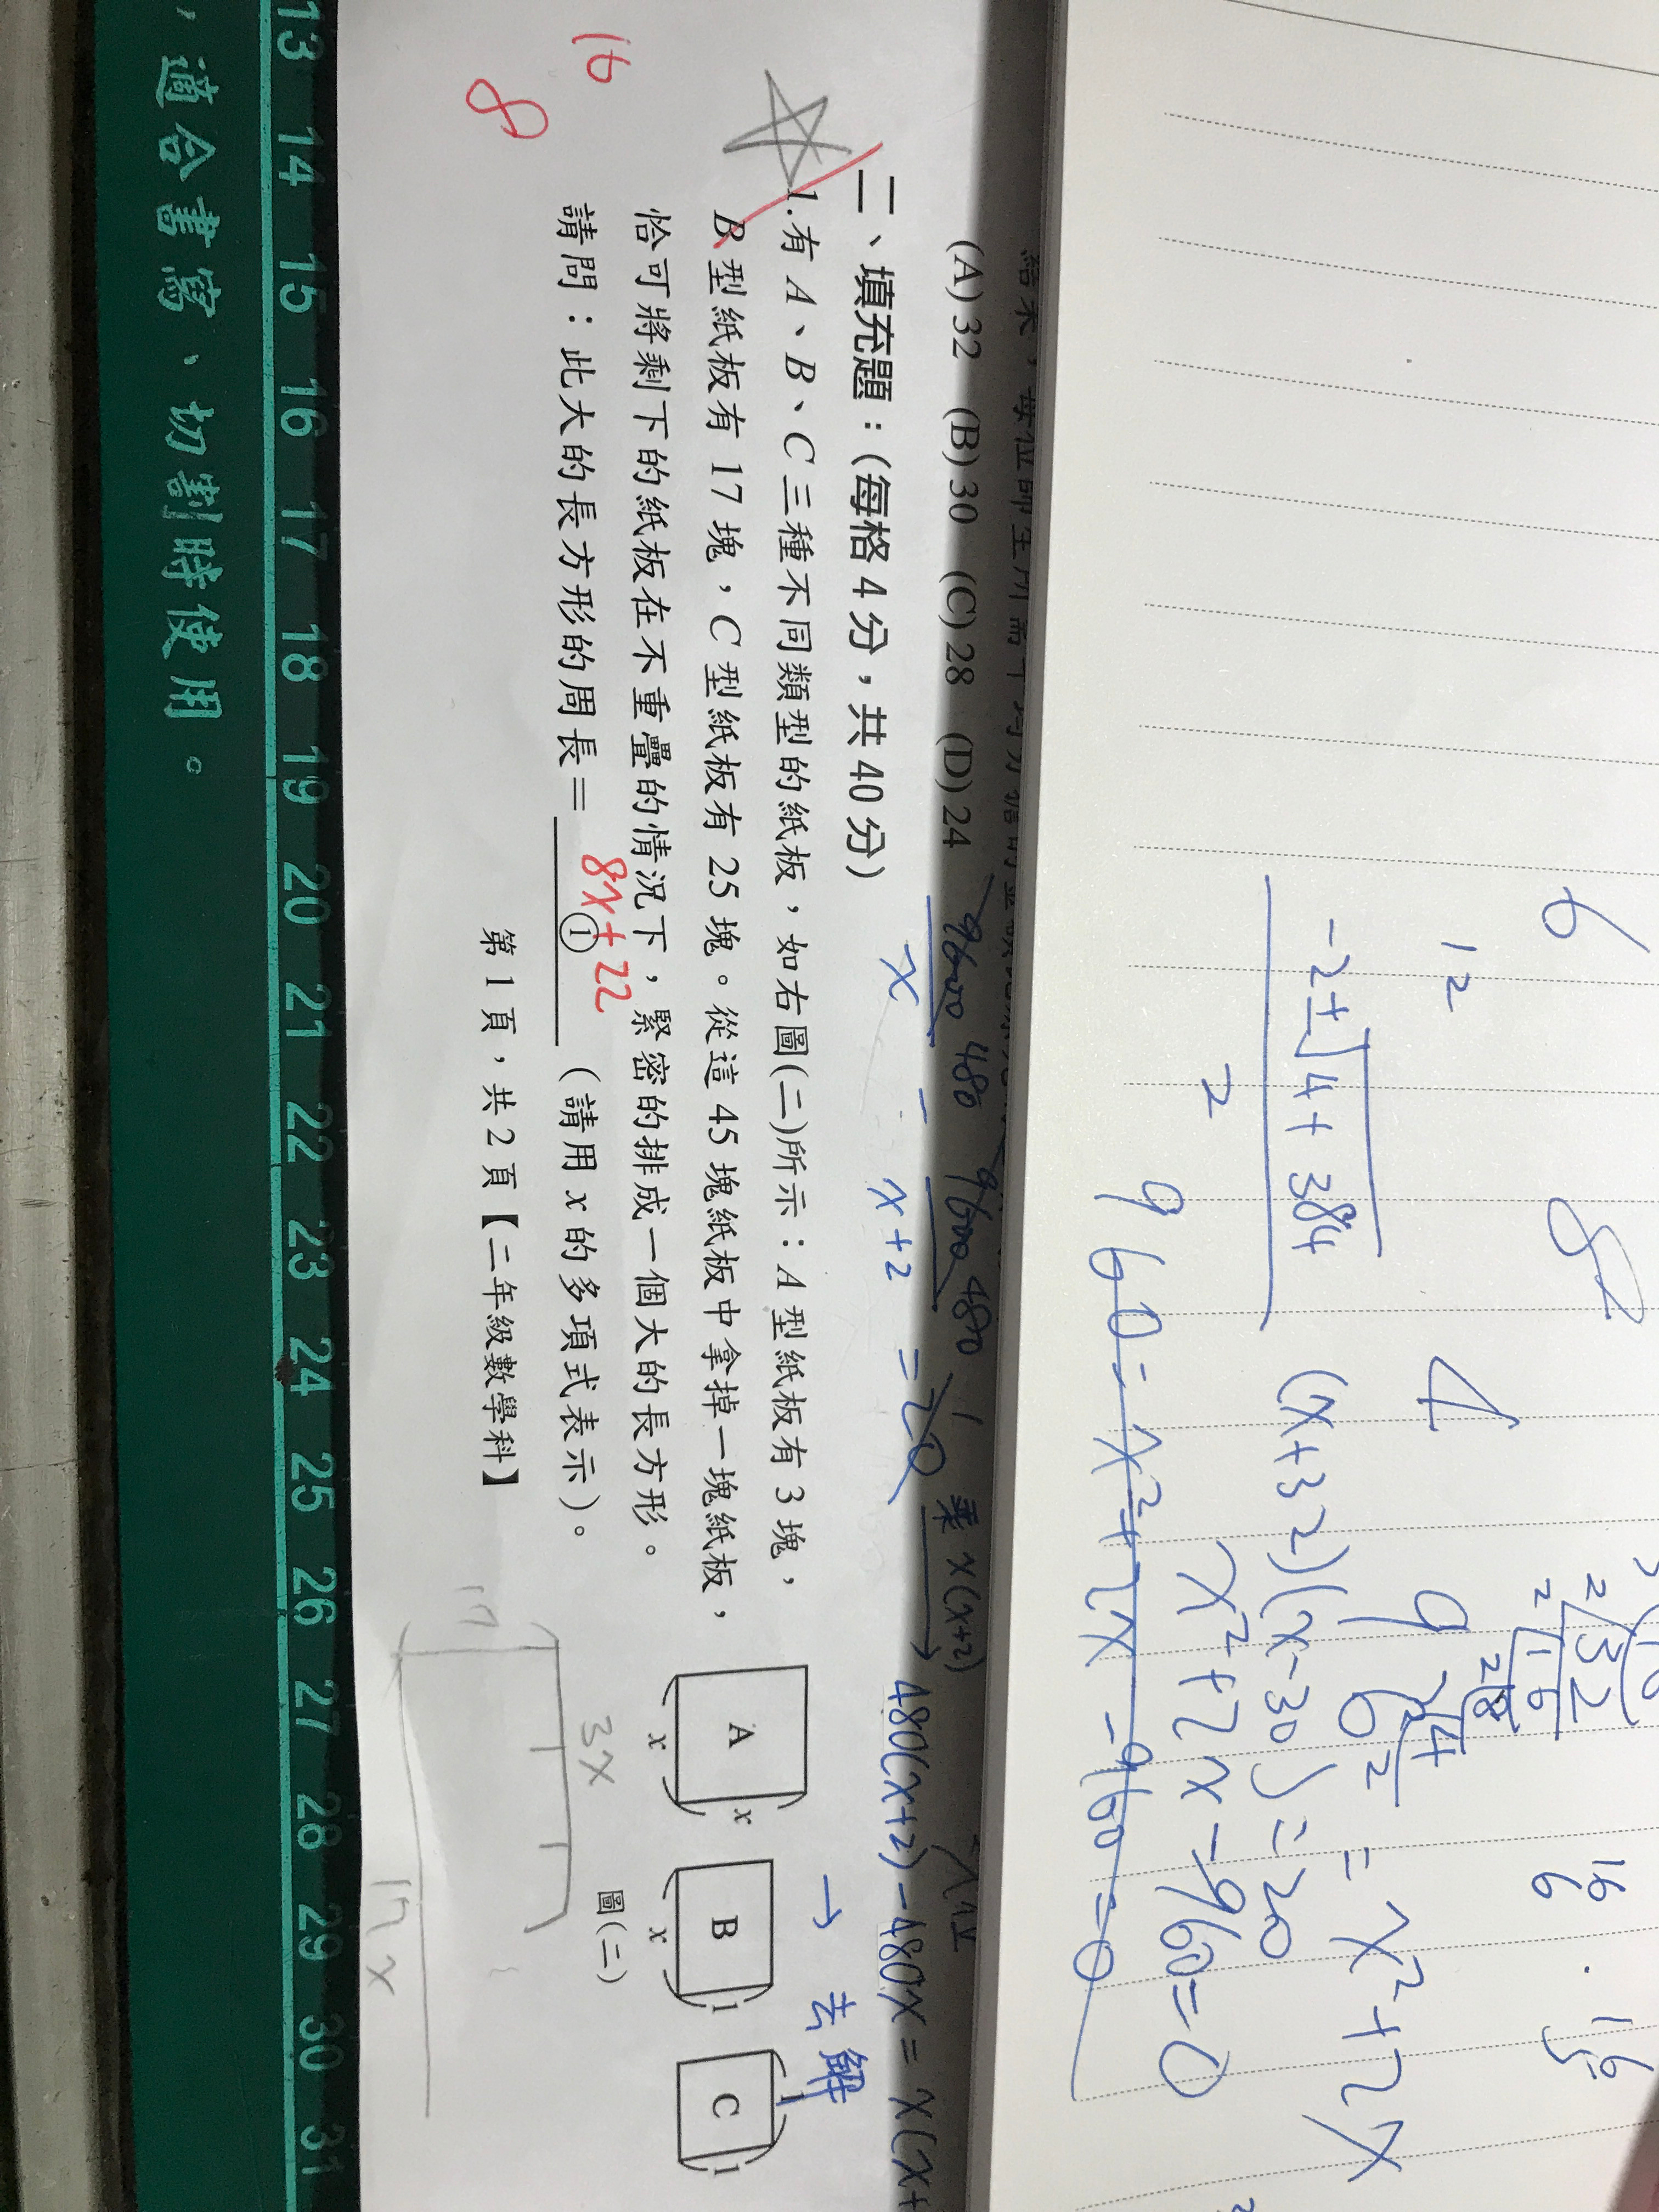 6
12
8
4
-2±√4+384
2
(x+32)(x-30)=20
960=x²+2x-960=0
x²+2x-960=0
=x²+2x
(A)32 (B)30 (C)28 (D)24
9600 480
x
-
9600 480
x+2
=20
1
乘 x(x+2)
480(x+2)-480x=x(x+
→ 去解
二、填充題：(每格4分，共40分)
1.有 A、B、C 三種不同類型的紙板，如右圖(二)所示：A 型紙板有 3 塊，
B 型紙板有 17 塊，C 型紙板有 25 塊。從這 45 塊紙板中拿掉一塊紙板，
恰可將剩下的紙板在不重疊的情況下，緊密的排成一個大的長方形。
請問：此大的長方形的周長＝ ① (請用 x 的多項式表示)。
8x+22
A
x
x
B
x
1
C
1
1
圖(二)
3x
17
17x
16
8
第 1 頁，共 2 頁【二年級數學科】
13 14 15 16 17 18 19 20 21 22 23 24 25 26 27 28 29 30 31
，適合書寫、切割時使用。